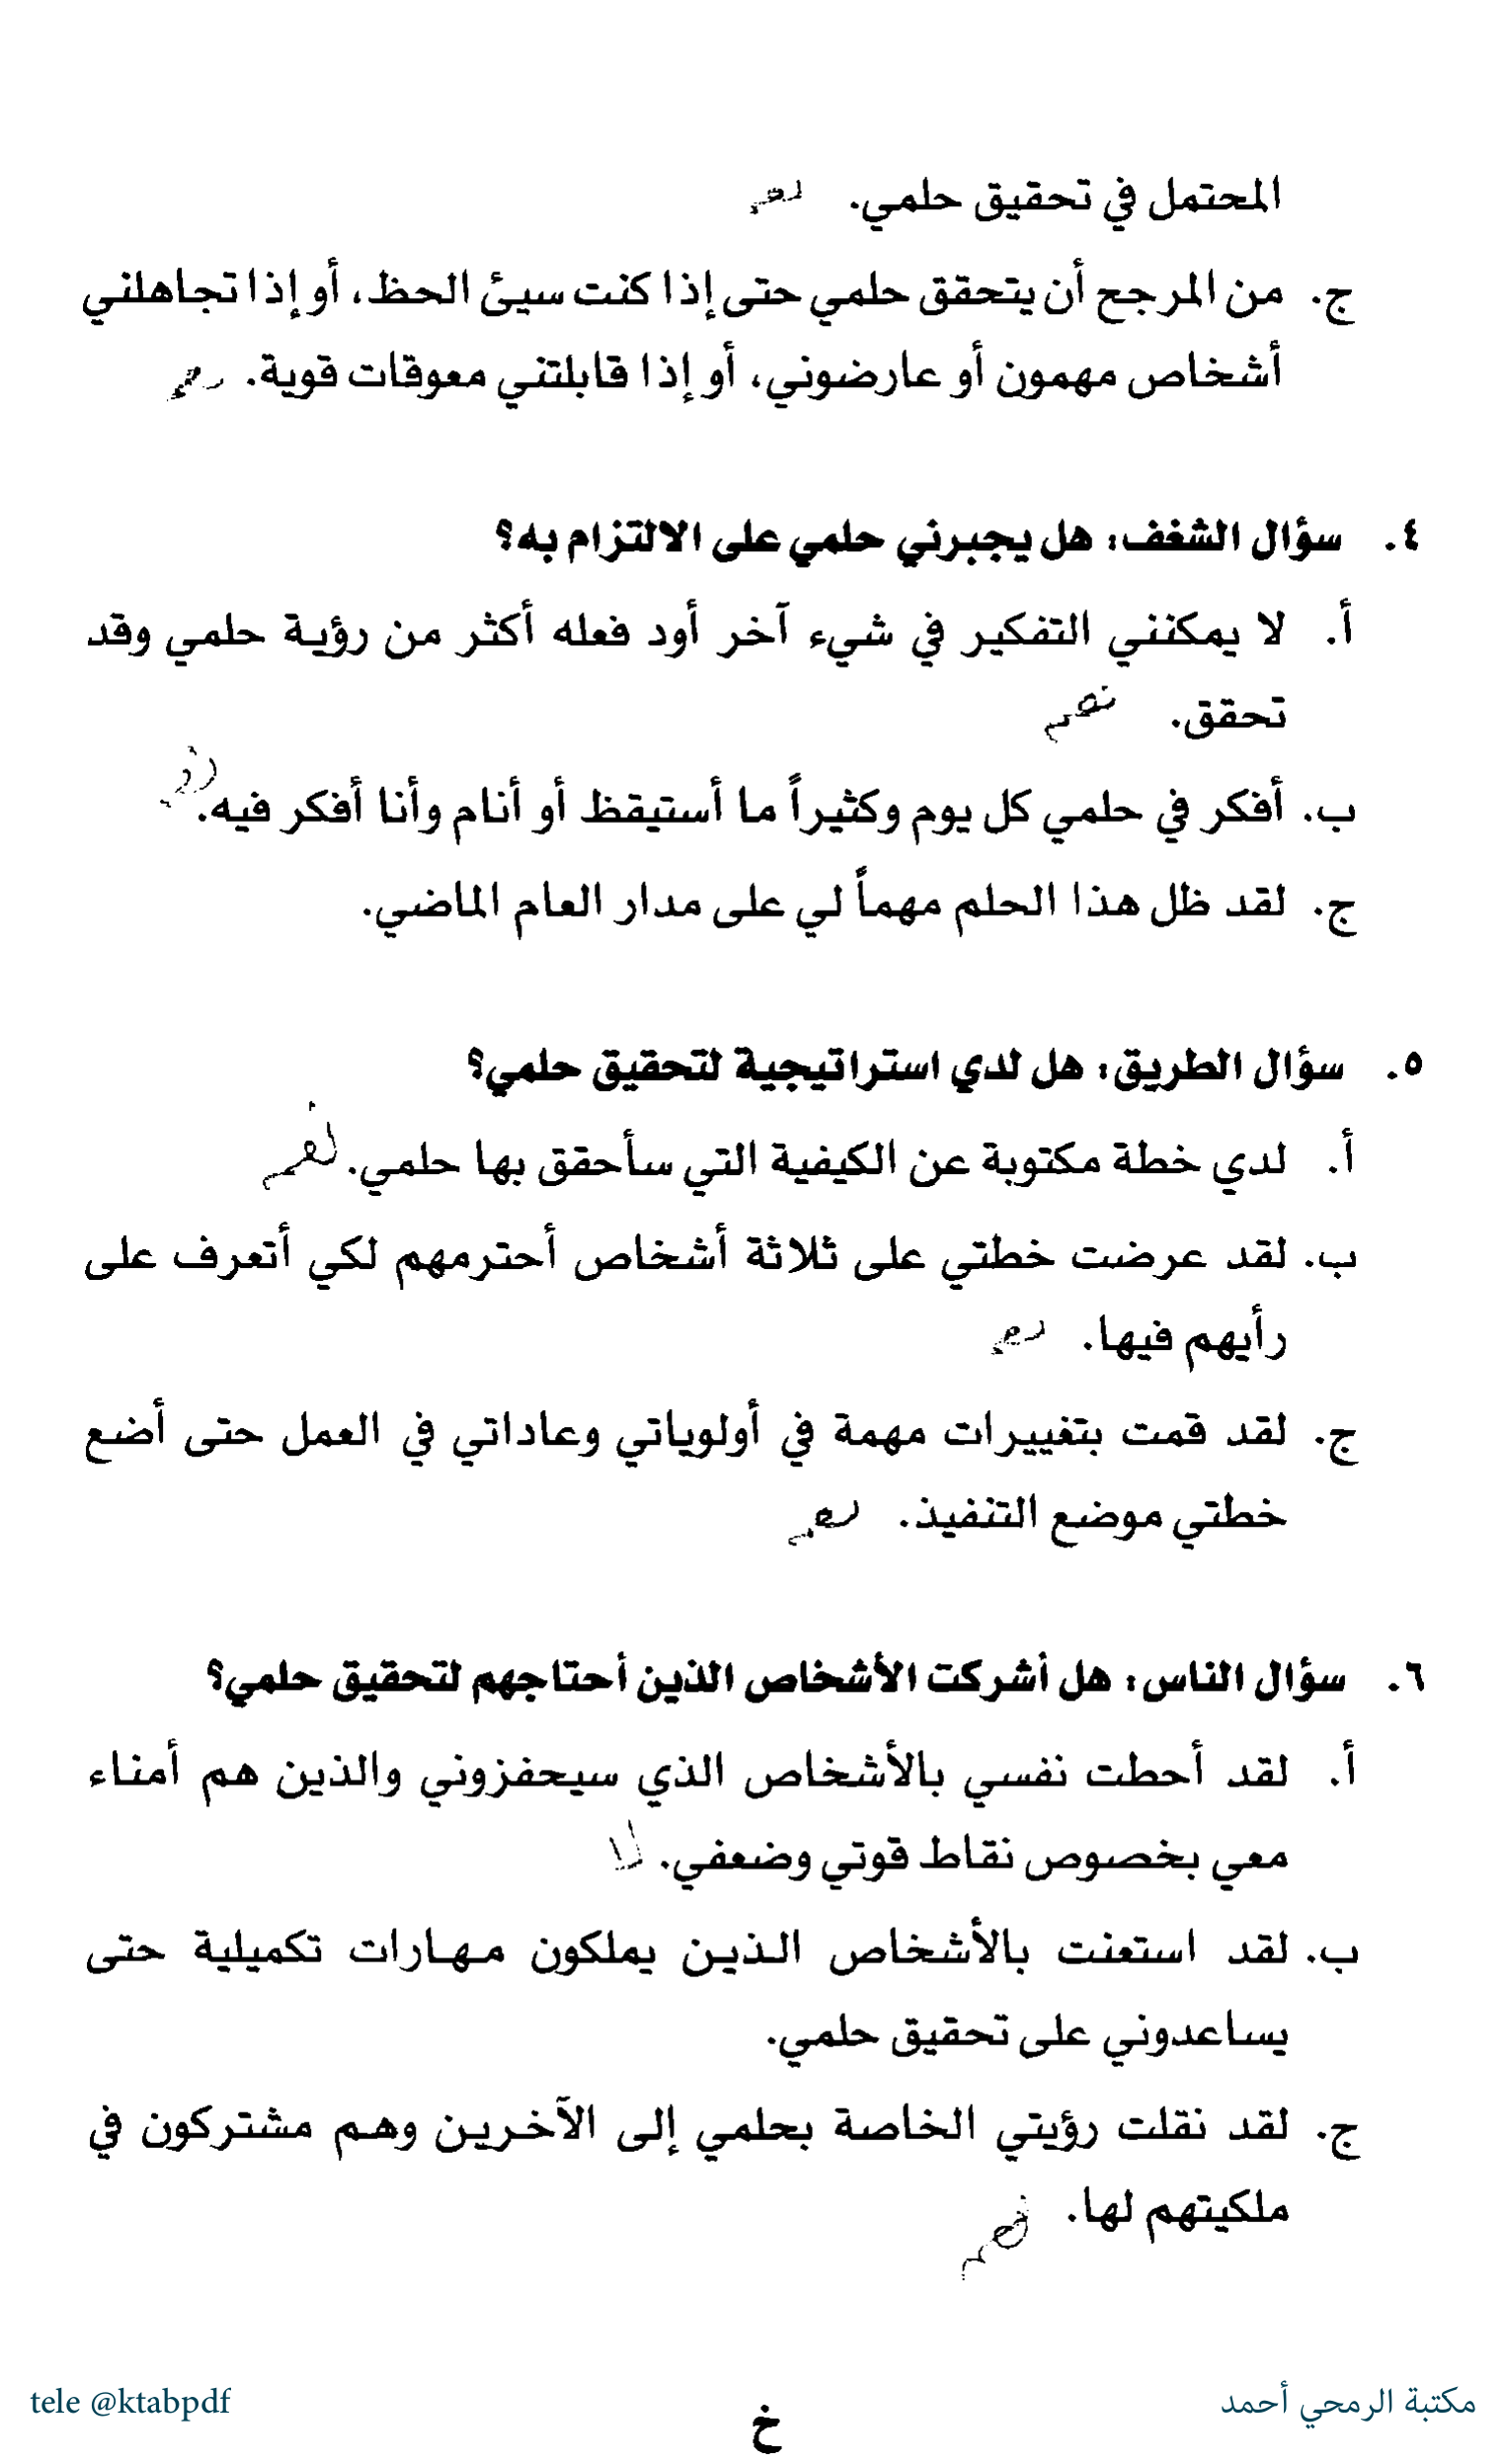 المحتمل في تحقيق حلمي. نعم
ج. من المرجح أن يتحقق حلمي حتى إذا كنت سيئ الحظ، أو إذا تجاهلني
أشخاص مهمون أو عارضوني، أو إذا قابلتني معوقات قوية. نعم
٤. سؤال الشغف: هل يجبرني حلمي على الالتزام به؟
أ. لا يمكنني التفكير في شيء آخر أود فعله أكثر من رؤية حلمي وقد
تحقق. نعم
ب. أفكر في حلمي كل يوم وكثيراً ما أستيقظ أو أنام وأنا أفكر فيه.
ج. لقد ظل هذا الحلم مهماً لي على مدار العام الماضي.
٥. سؤال الطريق: هل لدي استراتيجية لتحقيق حلمي؟
أ. لدي خطة مكتوبة عن الكيفية التي سأحقق بها حلمي. نعم
ب. لقد عرضت خطتي على ثلاثة أشخاص أحترمهم لكي أتعرف على
رأيهم فيها. نعم
ج. لقد قمت بتغييرات مهمة في أولوياتي وعاداتي في العمل حتى أضع
خطتي موضع التنفيذ. نعم
٦. سؤال الناس: هل أشركت الأشخاص الذين أحتاجهم لتحقيق حلمي؟
أ. لقد أحطت نفسي بالأشخاص الذي سيحفزوني والذين هم أمناء
معي بخصوص نقاط قوتي وضعفي. لا
ب. لقد استعنت بالأشخاص الذين يملكون مهارات تكميلية حتى
يساعدوني على تحقيق حلمي.
ج. لقد نقلت رؤيتي الخاصة بحلمي إلى الآخرين وهم مشتركون في
ملكيتهم لها. نعم
مكتبة الرمحي أحمد
خ
tele @ktabpdf